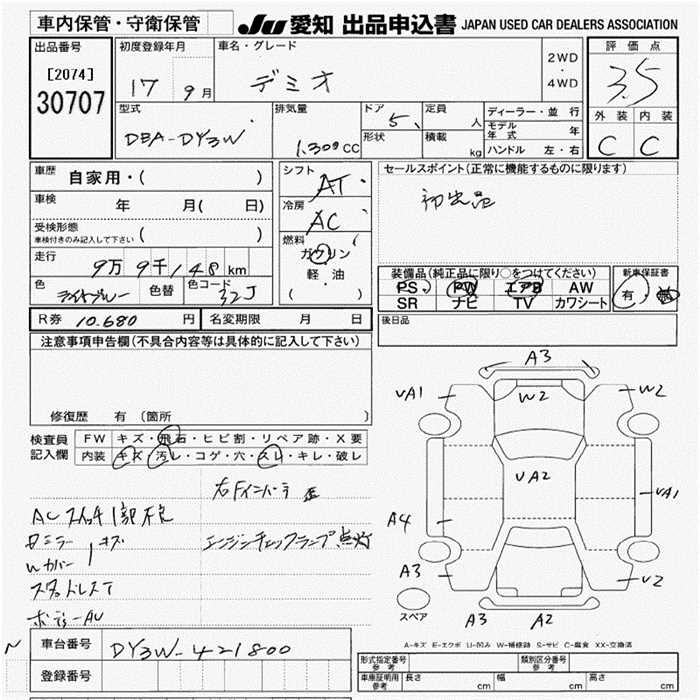 車内保管・守衛保管
JU 愛知 出品申込書 JAPAN USED CAR DEALERS ASSOCIATION
出品番号
[2074]
30707
初度登録年月
17 9月
車名・グレード
デミオ
2WD
・
4WD
評価点
3.5
外装 内装
C C
型式
DBA-DY3W
排気量
1.300CC
ドア 5
形状
定員 人
積載 kg
ディーラー・並行
モデル年式 年
ハンドル 左・右
車歴 自家用・( )
車検 年 月( 日)
受検形態
車検付きのみ記入して下さい ( )
走行 9万9千148km
色 ライトブルー 色替 色コード 32J
シフト
AT
冷房
AC
燃料
ガソリン
軽・油
( )
セールスポイント(正常に機能するものに限ります)
初出品
装備品(純正品に限り○をつけてください)
PS PW エアB AW
SR ナビ TV カワシート
新車保証書
有・無
後日品
R券 10.680 円 名変期限 月 日
注意事項申告欄(不具合内容等は具体的に記入して下さい)
修復歴 有(箇所 )
検査員
記入欄
FW キズ・飛石・ヒビ割・リペア跡・X要
内装 キズ・汚レ・コゲ・穴・スレ・キレ・破レ
ACスイッチ1部不良
キズ
Wカバー
スタッドレスT
ボディーAU
エンジンチェックランプ点灯
A3
UA1 W2 W2
UA2
UA1
A4
A3
U2
A3 A2
スペア
A-キズ E-エクボ U-凹み W-補修跡 S-サビ C-腐食 XX-交換済
N
車台番号 DY3W-421800
登録番号
形式指定番号
参考
類別区分番号
参考
車庫証明用
参考
長さ cm 幅 cm 高さ cm